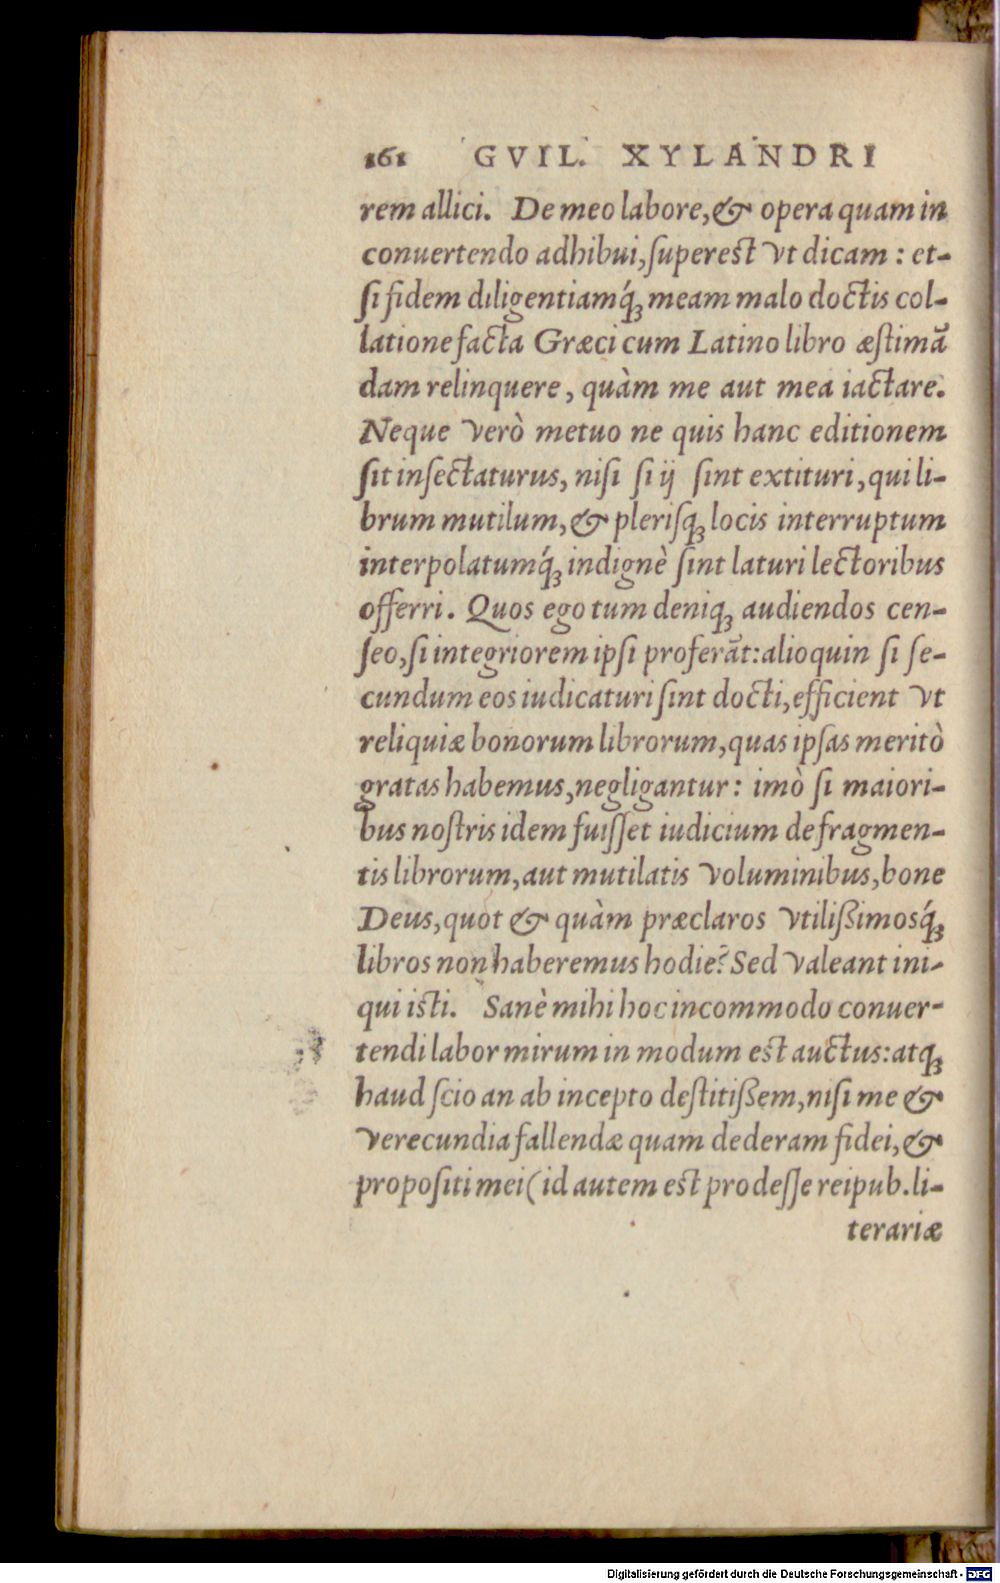 161 GVIL. XYLANDRI
rem allici. De meo labore, & opera quam in
conuertendo adhibui, ſupereſt vt dicam : et-
ſi fidem diligentiamq́ꝫ meam malo doctis col-
latione facta Græci cum Latino libro æſtimā
dam relinquere, quàm me aut mea iactare.
Neque verò metuo ne quis hanc editionem
ſit inſectaturus, niſi ſi ij ſint extituri, qui li-
brum mutilum, & pleriſqꝫ locis interruptum
interpolatumq́ꝫ indignè ſint laturi lectoribus
offerri. Quos ego tum deniqꝫ audiendos cen-
ſeo, ſi integriorem ipſi proferāt: alioquin ſi ſe-
cundum eos iudicaturi ſint docti, efficient vt
reliquiæ bonorum librorum, quas ipſas meritò
gratas habemus, negligantur : imò ſi maiori-
bus noſtris idem fuiſſet iudicium de fragmen-
tis librorum, aut mutilatis voluminibus, bone
Deus, quot & quàm præclaros vtilißimosq́ꝫ
libros non haberemus hodie? Sed valeant ini-
qui iſti. Sanè mihi hoc incommodo conuer-
tendi labor mirum in modum eſt auctus: atqꝫ
haud ſcio an ab incepto deſtitißem, niſi me &
verecundia fallendæ quam dederam fidei, &
propoſiti mei (id autem eſt prodeſſe reipub. li-
terariæ
Digitalisierung gefördert durch die Deutsche Forschungsgemeinschaft - DFG